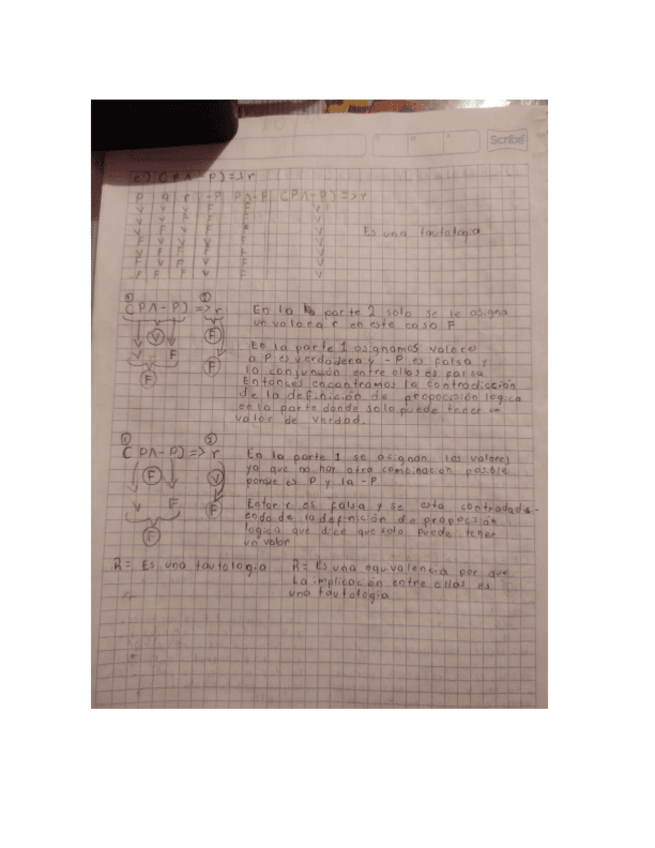 Scribe
c) (P∧-P)=>r
P q r -P P∧-P (P∧-P)=>r
Es una tautologia
V
V
V
V
F F V F V
① ②
(P∧-P) => r
En la parte 2 solo se le asigna
un valor a r en este caso F
V F
V F F
F
En la parte 1 asignamos valore
a P es verdadera y -P es falsa y
la conjunción entre ellas es falsa
Entonces encontramos la contradicción
de la definición de proposición lógica
en la parte donde solo puede tener un
valor de verdad.
(P∧-P) => r
En la parte 1 se asignan los valores
ya que no hay otra combinación posible
porque es P y la -P
F V
V F F
F
r es falsa y se esta
de la definición de proposición
logica que dice que solo puede tener
un valor
R= Es una tautologia
R= Es una equivalencia por que
la implicación entre ellas es
una tautologia